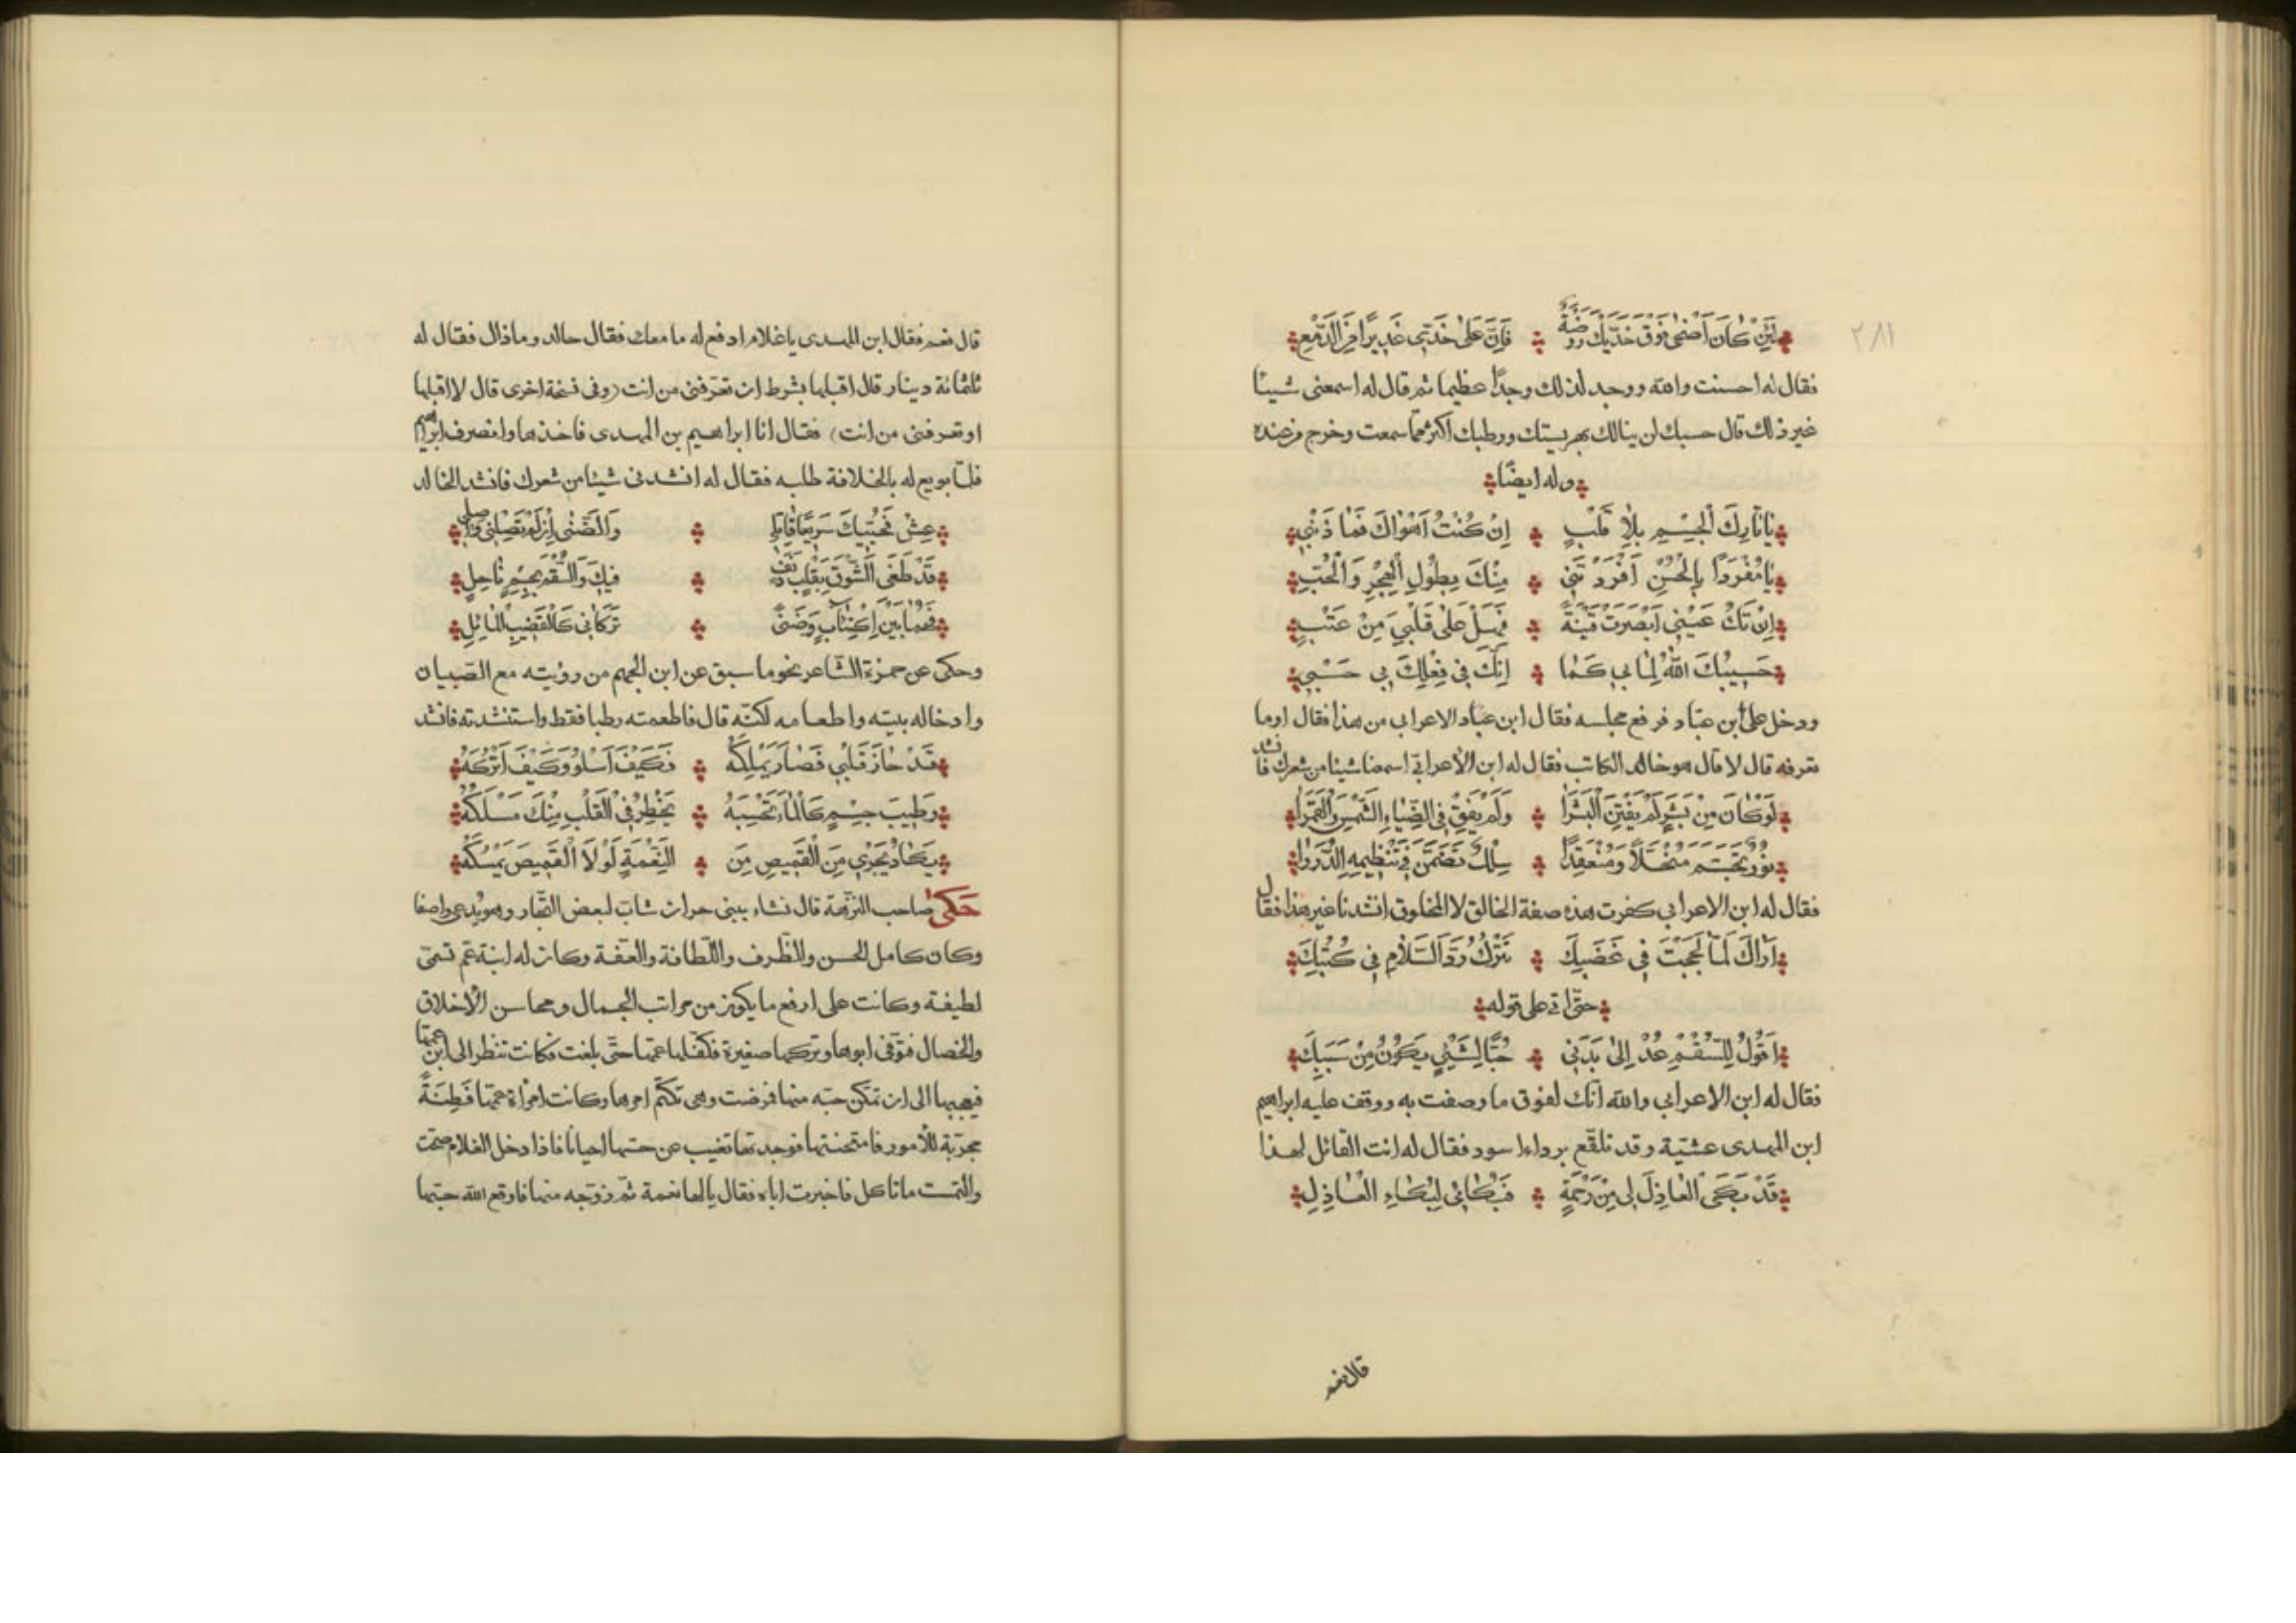 ٢٨١
لَئِنْ كَانَ أَضْحٰى فَوْقَ خَدَّيْكَ رَوْضَةٌ فَاِنَّ عَلٰى خَدّى غَدِيرًا مِنَ الدَّمْعِ
فقال له احسنت والله ووجد لذلك وجدًا عظيما ثم قال له اسمعنى شيئا
غير ذلك قال حسبك لن ينالك بهريستك ورطبك اكثر مما سمعت وخرج من عنده
وله ايضًا
يَا تَارِكَ الْجِسْمِ بِلَا قَلْبٍ اِنْ كُنْتُ اَهْوَاكَ فَمَا ذَنْبِى
يَا مُفْرَدًا بِالْحُسْنِ اَفْرَدْتَنِى مِنْكَ بِطُولِ الْهَجْرِ وَالْحُبِّ
اِنْ تَكُ عَيْنِى اَبْصَرَتْ فِتْنَةً فَهَلْ عَلٰى قَلْبِىَ مِنْ عَتْبِ
حَسِيبُكَ اللهُ لِمَا بِى كَمَا اِنَّكَ فِى فِعْلِكَ بِى حَسْبِى
ودخل على ابن عباد فرفع مجلسه فقال ابن عباد الاعرابى من هذا فقال اوما
تعرفه قال لا قال هو خالد الكاتب فقال له ابن الأعرابى اسمعنا شيئا من شعرك فانشد
لَوْ كَانَ مِنْ بَشَرٍ لَمْ يَفْتِنِ الْبَشَرَا وَلَمْ يَفُقْ فِى الضِّيَاءِ الشَّمْسَ وَالْقَمَرَا
نُورٌ تَجَسَّمَ مُنْحَلًّا وَمُنْعَقِدًا سِلْكٌ تَضَمَّنَ فِى تَنْظِيمِهِ الدُّرَرَا
فقال له ابن الاعرابى كفرت هذه صفة الخالق لا المخلوق انشدنا غير هذا فقال
اَرَاكَ لَمَّا لَجَجْتَ فِى غَضَبِكَ تَتْرُكُ رَدَّ السَّلَامِ فِى كُتُبِكَ
حتى اتى على قوله
اَقُولُ لِلسُّقْمِ عُدْ اِلٰى بَدَنِى حُبًّا لِشَيْئٍ يَكُونُ مِنْ سَبَبِكَ
فقال له ابن الاعرابى والله انك لفوق ما وصفت به ووقف عليه ابراهيم
ابن المهدى عشيّة وقد تلفّع برداء اسود فقال له انت القائل لهذا
قَدْ بَكَى الْعَاذِلُ لِى مِنْ رَحْمَةٍ فَبُكَائِى لِبُكَاءِ الْعَاذِلِ
قال نعم
قال نعم فقال ابن المهدى يا غلام ادفع له ما معك فقال خالد وما ذاك فقال له
ثلثمائة دينار قال اقبلها بشرط ان تعرفنى من انت (وفى نسخة اخرى قال لا اقبلها
او تعرفنى من انت) فقال انا ابراهيم بن المهدى فاخذها وانصرف ابراهيم
فلمّا بويع له بالخلافة طلبه فقال له انشدنى شيئا من شعرك فانشد الخالد
عِشْ فَحُبِّيكَ سَرِيعًا قَاتِلِى وَالضَّنٰى اِنْ لَمْ تَصِلْنِى وَاصِلِى
قَدْ طَغَى الشَّوْقُ بِقَلْبٍ دَنِفٍ فِيكَ وَالسُّقْمُ بِجِسْمٍ نَاحِلِ
فَهُمَا بَيْنَ اكْتِئَابٍ وَضَنًى تَرَكَانِى كَالْقَضِيبِ الْمَائِلِ
وحكى عن حمزة الشاعر نحو ما سبق عن ابن الجهم من رؤيته مع الصبيان
وادخاله بيته واطعامه لكنّه قال فاطعمته رطبا فقط واستنشدته فانشد
قَدْ حَازَ قَلْبِى فَصَارَ يَمْلِكُهُ فَكَيْفَ اَسْلُو وَكَيْفَ اَتْرُكُهُ
رَطِيبَ جِسْمٍ كَالْمَاءِ تَحْسِبَهُ يَخْطِرُ فِى الْقَلْبِ مِنْكَ مَسْلَكُهُ
يَكَادُ يَجْرِى مِنَ الْقَمِيصِ مِنَ النِّعْمَةِ لَوْلَا الْقَمِيصُ يَمْسُكُهُ
حَكٰى صاحب النزهة قال نشاء ببنى حران شاب لبعض التجار وهو يدعى واصفا
وكان كامل الحسن والظّرف واللّطافة والعفّة وكان له ابنة عم تسمّى
لطيفة وكانت على ارفع ما يكون من مراتب الجمال ومحاسن الأخلاق
والخصال فتوّفى ابوها وتركها صغيرة فكفلها عمّها حتّى بلغت فكانت تنظر الى ابن عمّها
فيعجبها الى ان تمكّن حبّه منها فمرضت وهى تكتم امرها وكانت امرأة عمّها فَطِنَةً
مجرّبة للأمور فامتحنتها فوجدتها تغيب عن حسّها احيانًا فاذا دخل الغلام صحّت
والتمست ما تاكل فاخبرت اباه فقال يالها نعمة ثم زوّجه منها فاوقع الله حبّها